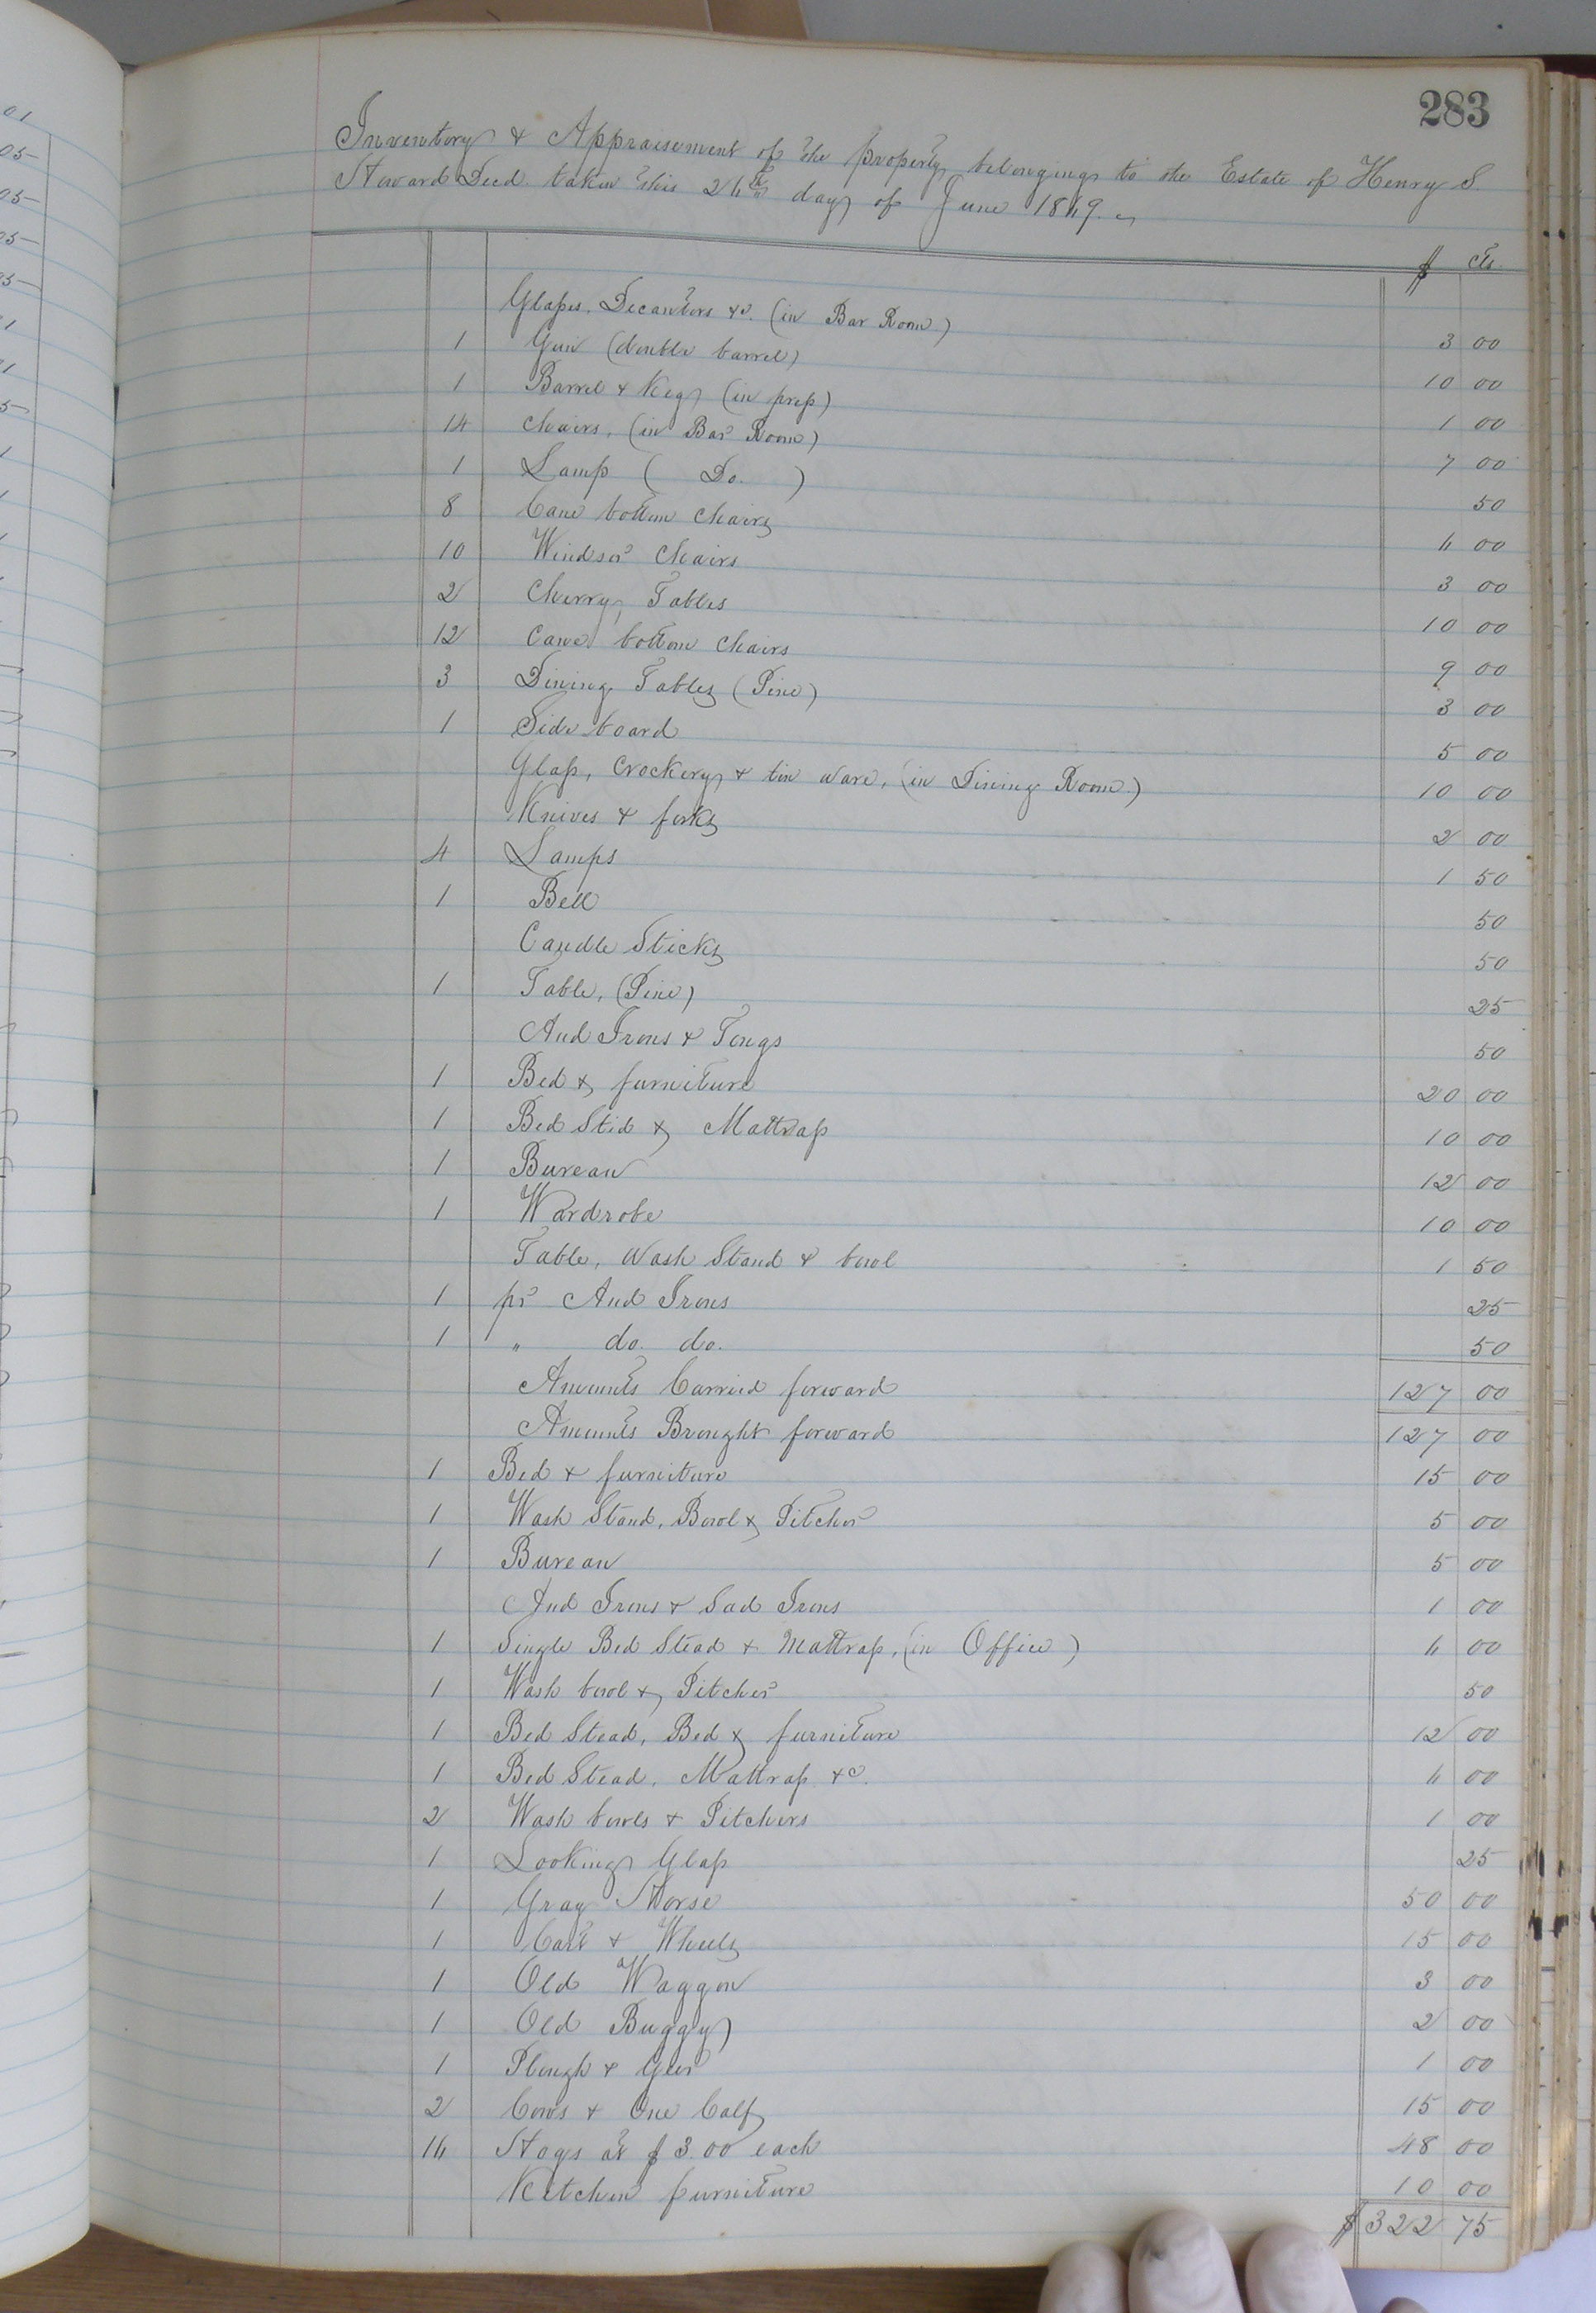 283
Inventory & Appraisement of the property belonging to the Estate of Henry S.
Howard Decd. taken this 26th day of June 1869.
$ Cts.
Glass, Decanters &c. (in Bar Room) 3 00
1 Gun (double barrel) 10 00
1 Barrel & Keg (in press) 1 00
14 Chairs, (in Bar Room) 7 00
1 Lamp ( Do. ) 50
8 Cane bottom Chairs 6 00
10 Windsor Chairs 3 00
2 Cherry Tables 10 00
12 Cane bottom Chairs 9 00
3 Dining Tables (Pine) 3 00
1 Side board 5 00
Glass, Crockery & tin ware, (in Dining Room) 10 00
Knives & forks 2 00
4 Lamps 1 50
1 Bell 50
Candle Sticks 50
1 Table, (Pine) 25
And Irons & Tongs 50
1 Bed & furniture 20 00
1 Bed Sted & Mattrass 10 00
1 Bureau 12 00
1 Wardrobe 10 00
Table, Wash Stand & bowl 1 50
1 pr And Irons 25
1 " do. do. 50
Amounts Carried forward 127 00
Amounts Brought forward 127 00
1 Bed & furniture 15 00
1 Wash Stand, Bowl & Pitcher 5 00
1 Bureau 5 00
And Irons & Sad Irons 1 00
1 Single Bed Stead & Mattrass, (in Office) 6 00
1 Wash bowl & Pitcher 50
1 Bed Stead, Bed & furniture 12 00
1 Bed Stead, Mattrass &c. 6 00
2 Wash bowls & Pitchers 1 00
1 Looking Glass 25
1 Gray Horse 50 00
1 Cart & Wheels 15 00
1 Old Waggon 3 00
1 Old Buggy 2 00
1 Plough & Geer 1 00
2 Cows & One Calf 15 00
16 Hogs at $3.00 each 48 00
Kitchen furniture 10 00
$322 75